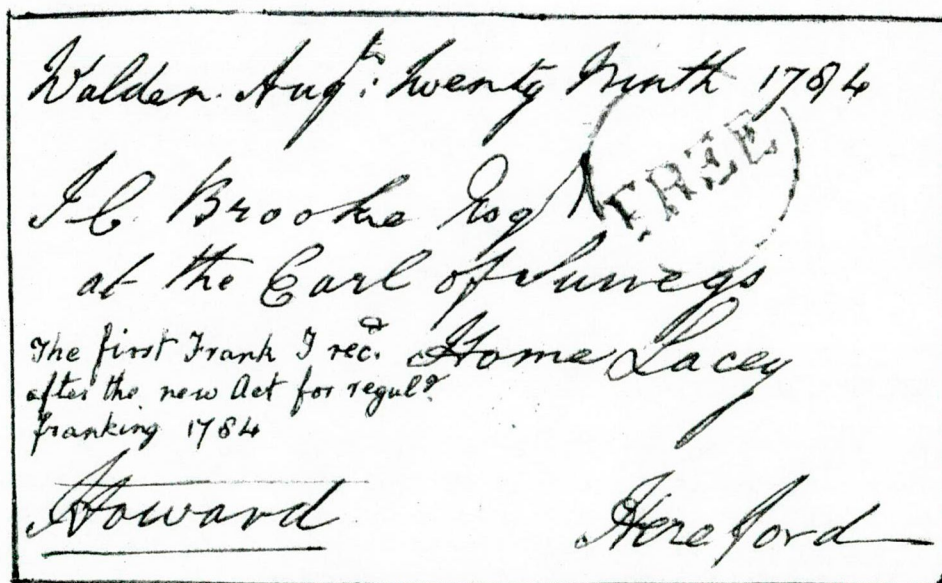 Walden Augᵗ: twenty Ninth 1784
FREE
J C Brooke Esqʳ
at the Earl of Surreys
The first Frank I recᵈ. Home Lacey
after the new Act for regulᵍ.
franking 1784
Howard Hereford